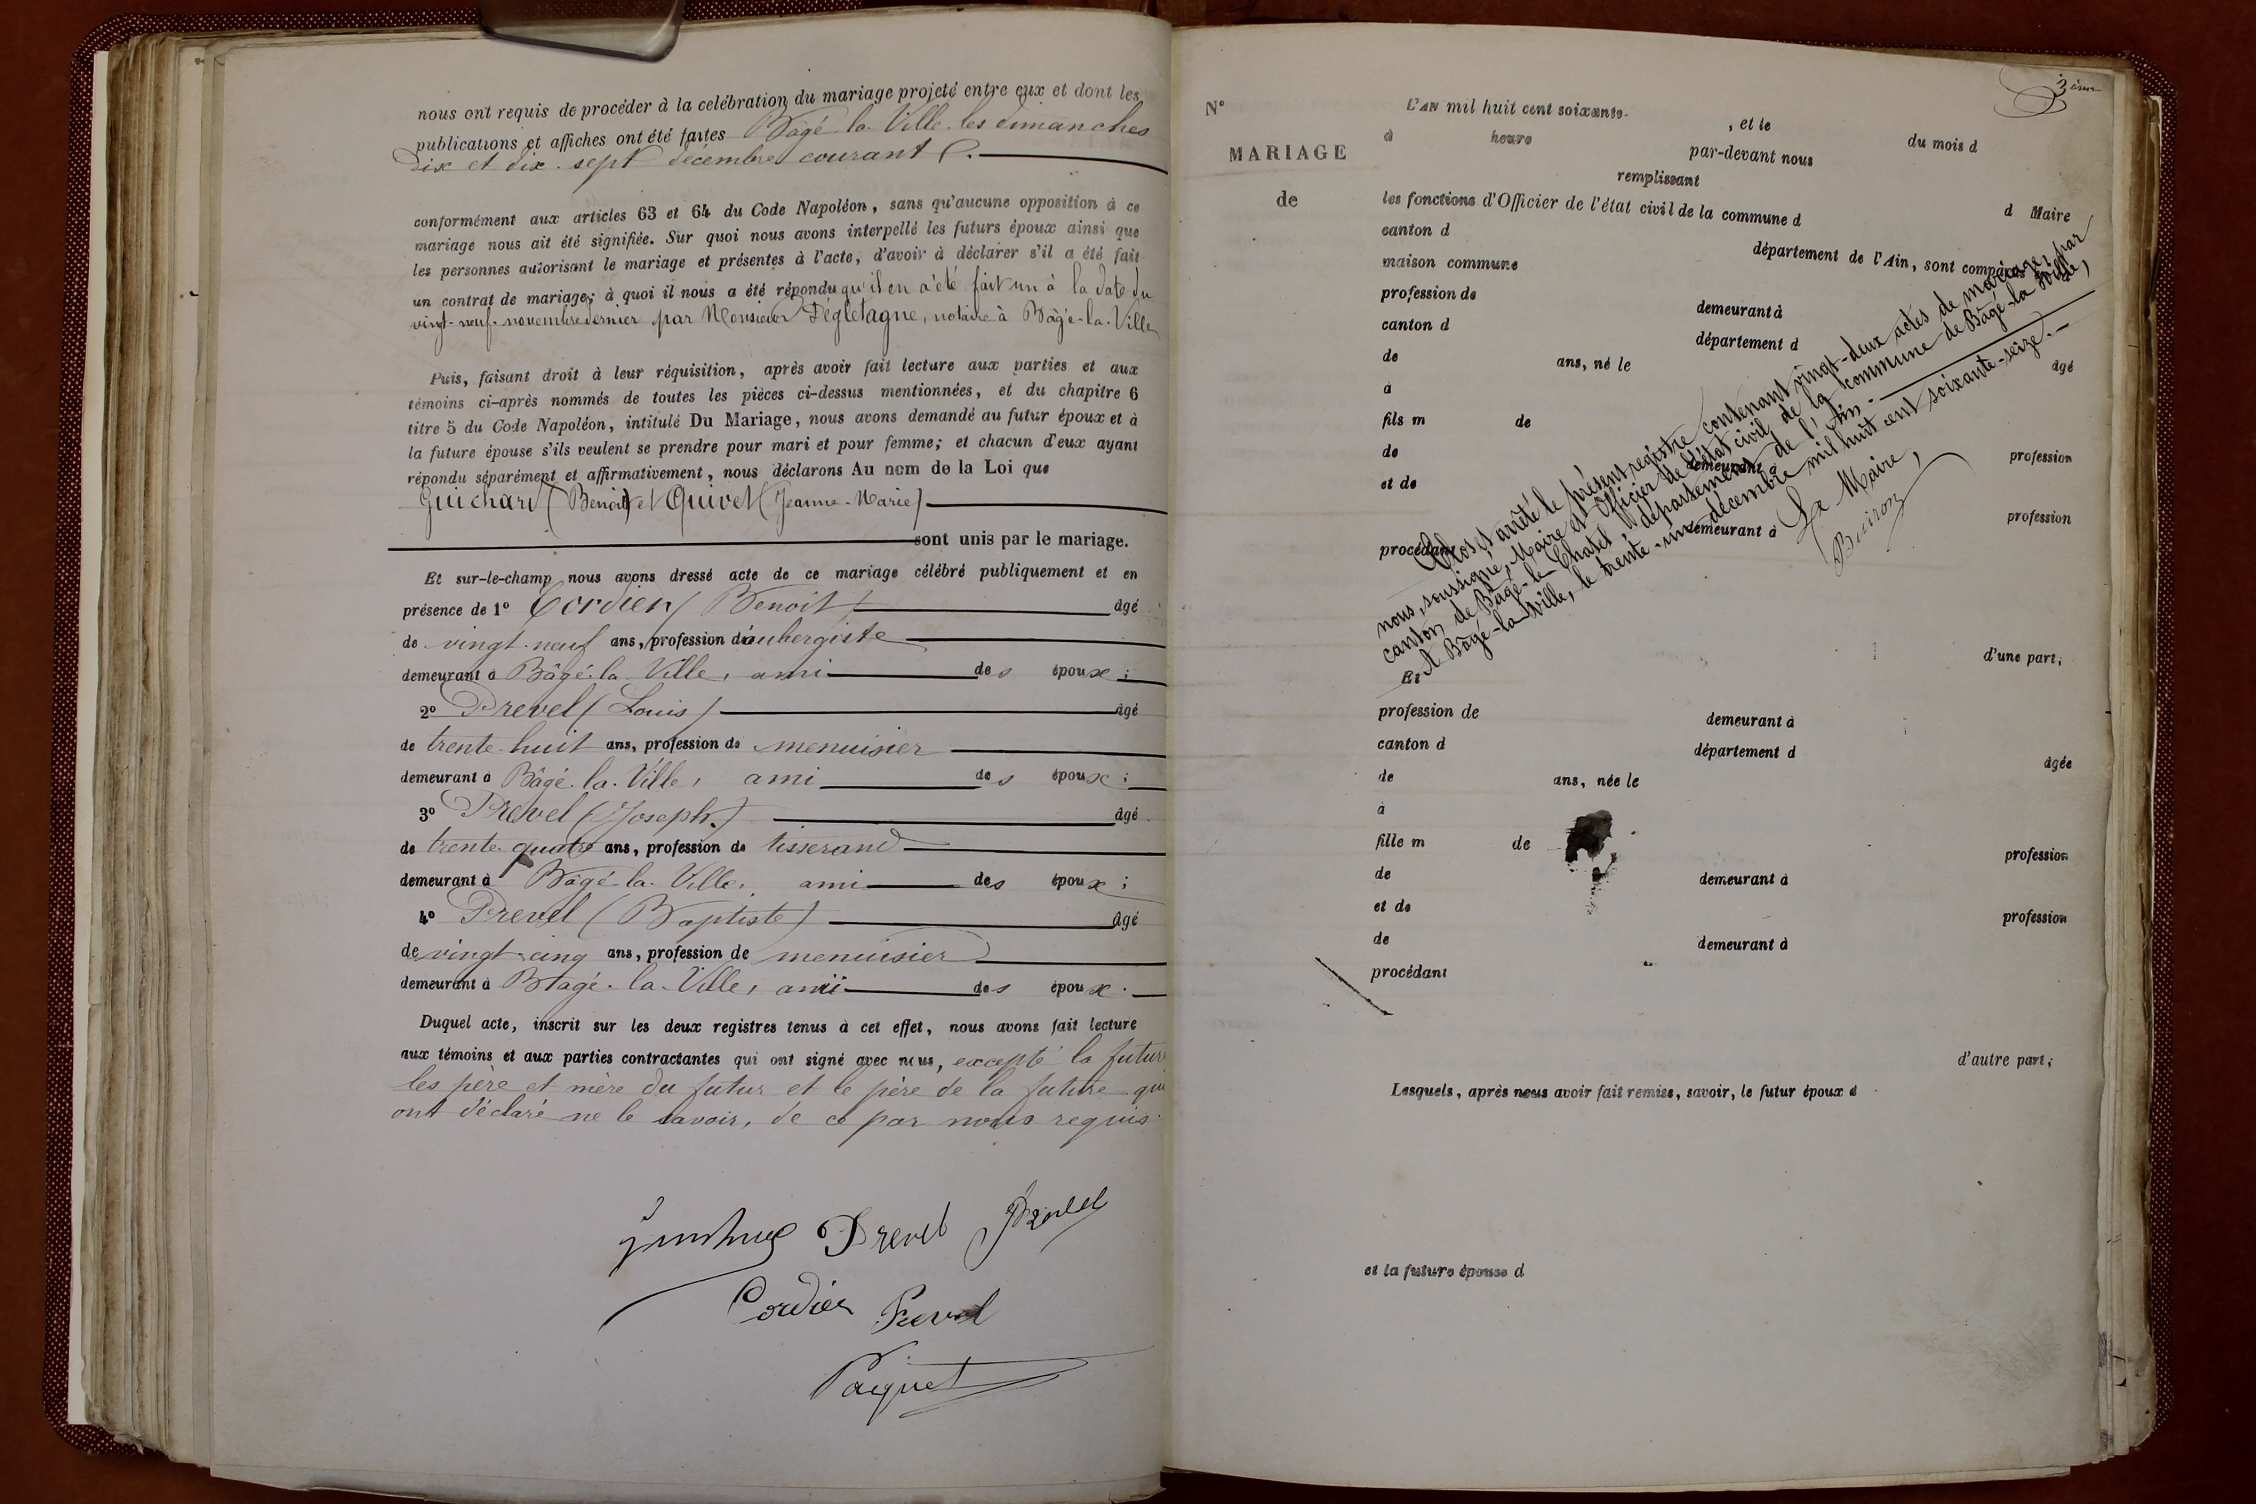 nous ont requis de procéder à la celébration du mariage projeté entre eux et dont les
publications et affiches ont été faites Bâgé-la-Ville les dimanches
dix et dix-sept décembre courant.
conformément aux articles 63 et 64 du Code Napoléon, sans qu'aucune opposition à ce
mariage nous ait été signifiée. Sur quoi nous avons interpellé les futurs époux ainsi que
les personnes autorisant le mariage et présentes à l'acte, d'avoir à déclarer s'il a été fait
un contrat de mariage; à quoi il nous a été répondu qu'il en a été fait un à la date du
vingt-neuf novembre dernier par Monsieur Dégletagne, notaire à Bâgé-la-Ville
Puis, faisant droit à leur réquisition, après avoir fait lecture aux parties et aux
témoins ci-après nommés de toutes les pièces ci-dessus mentionnées, et du chapitre 6
titre 5 du Code Napoléon, intitulé Du Mariage, nous avons demandé au futur époux et à
la future épouse s'ils veulent se prendre pour mari et pour femme; et chacun d'eux ayant
répondu séparément et affirmativement, nous déclarons Au nom de la Loi que
Guichard (Benoit) et Quivet (Jeanne-Marie)
sont unis par le mariage.
Et sur-le-champ nous avons dressé acte de ce mariage célébré publiquement et en
présence de 1° Cordier (Benoit) âgé
de vingt-neuf ans, profession d'aubergiste
demeurant à Bâgé-la-Ville, ami des époux;
2° Prevel (Louis) âgé
de trente-huit ans, profession de menuisier
demeurant à Bâgé-la-Ville, ami des époux;
3° Prevel (Joseph) âgé
de trente-quatre ans, profession de tisserand
demeurant à Bâgé-la-Ville, ami des époux;
4° Prevel (Baptiste) âgé
de vingt-cinq ans, profession de menuisier
demeurant à Bâgé-la-Ville, ami des époux.
Duquel acte, inscrit sur les deux registres tenus à cet effet, nous avons fait lecture
aux témoins et aux parties contractantes qui ont signé avec nous, excepté la future
les père et mère du futur et le père de la future qui
ont déclaré ne le savoir, de ce par nous requis.
Prevel
Cordier Prevel
Paquet
N°
MARIAGE
de
L'AN mil huit cent soixante-
, et le du mois d
à heure par-devant nous
remplissant
les fonctions d'Officier de l'état civil de la commune d d Maire
canton d département de l'Ain, sont comparus à la
maison commune
profession de demeurant à
canton d département d
de ans, né le âgé
à
fils m de
de demeurant à profession
et de
demeurant à profession
procédant
Clos et arrêté le présent registre contenant vingt-deux actes de mariage, par
nous, soussigné, Maire et Officier de l'état civil de la commune de Bâgé-la-Ville,
canton de Bâgé-le-Chatel, département de l'Ain.
A Bâgé-la-Ville, le trente-un décembre mil huit cent soixante-seize.
Le Maire,
d'une part;
Et
profession de demeurant à
canton d département d
de ans, née le âgée
à
fille m de profession
de demeurant à
et de profession
de demeurant à
procédant
d'autre part;
Lesquels, après nous avoir fait remise, savoir, le futur époux d
et la future épouse d